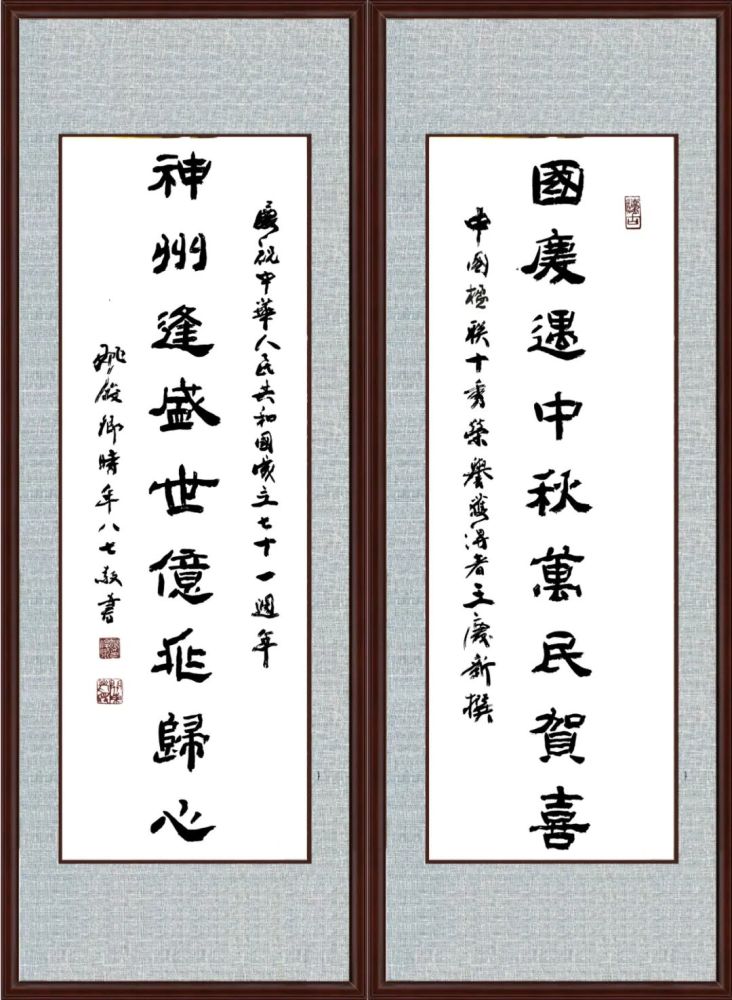 國慶遇中秋萬民賀喜
中國楹联十秀榮譽獲得者王慶新撰
慶祝中華人民共和國成立七十一週年
神州逢盛世億兆歸心
姚俊卿時年八七敬書